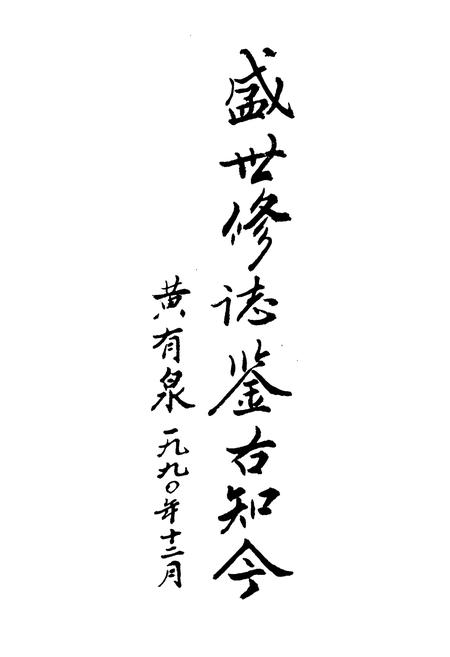 盛世修誌鉴古知今
黄有泉 一九九〇年十二月